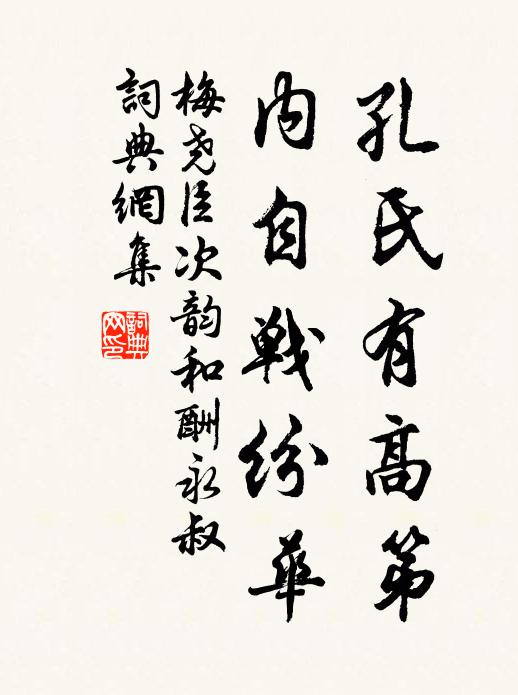 孔氏有高第
内自戦纷華
梅尧臣次韵和酬永叔
詞典網集
詞典
网印